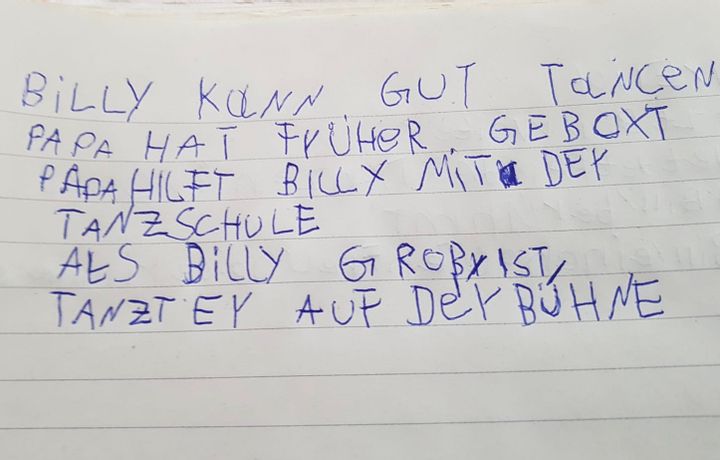 BiLLY KaNN GUT TaNCeN
PAPA HAT FrÜHeR GEBOXT
PAPA HILFT BILLY MiT DEr
TANZSCHULE
ALS BiLLY GROß IST,
TANZT Er AUF DEr BÜHNE